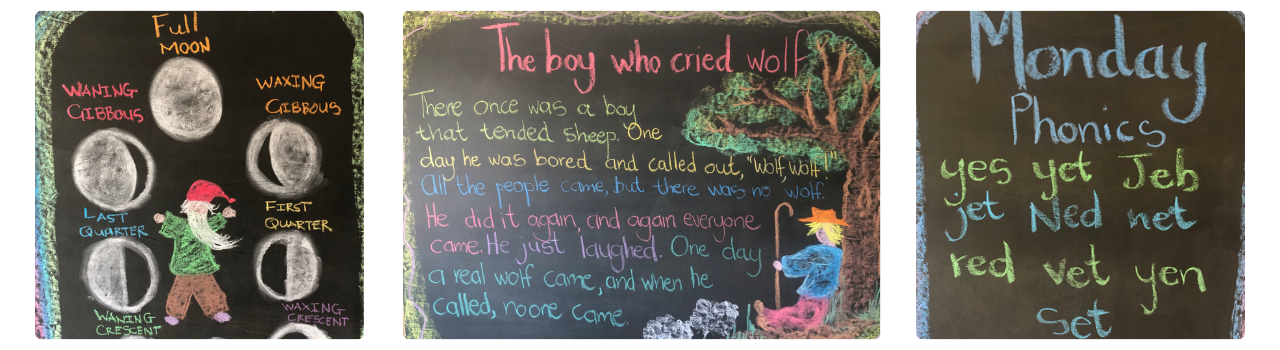 Full
MOON
WANING
GIBBOUS
WAXING
GIBBOUS
LAST
QUARTER
FIRST
QUARTER
WANING
CRESCENT
WAXING
CRESCENT
The boy who cried wolf
There once was a boy
that tended sheep. One
day he was bored and called out, "Wolf, wolf!"
All the people came, but there was no wolf.
He did it again, and again everyone
came. He just laughed. One day
a real wolf came, and when he
called, noone came.
Monday
Phonics
yes yet Jeb
jet Ned net
red vet yen
set